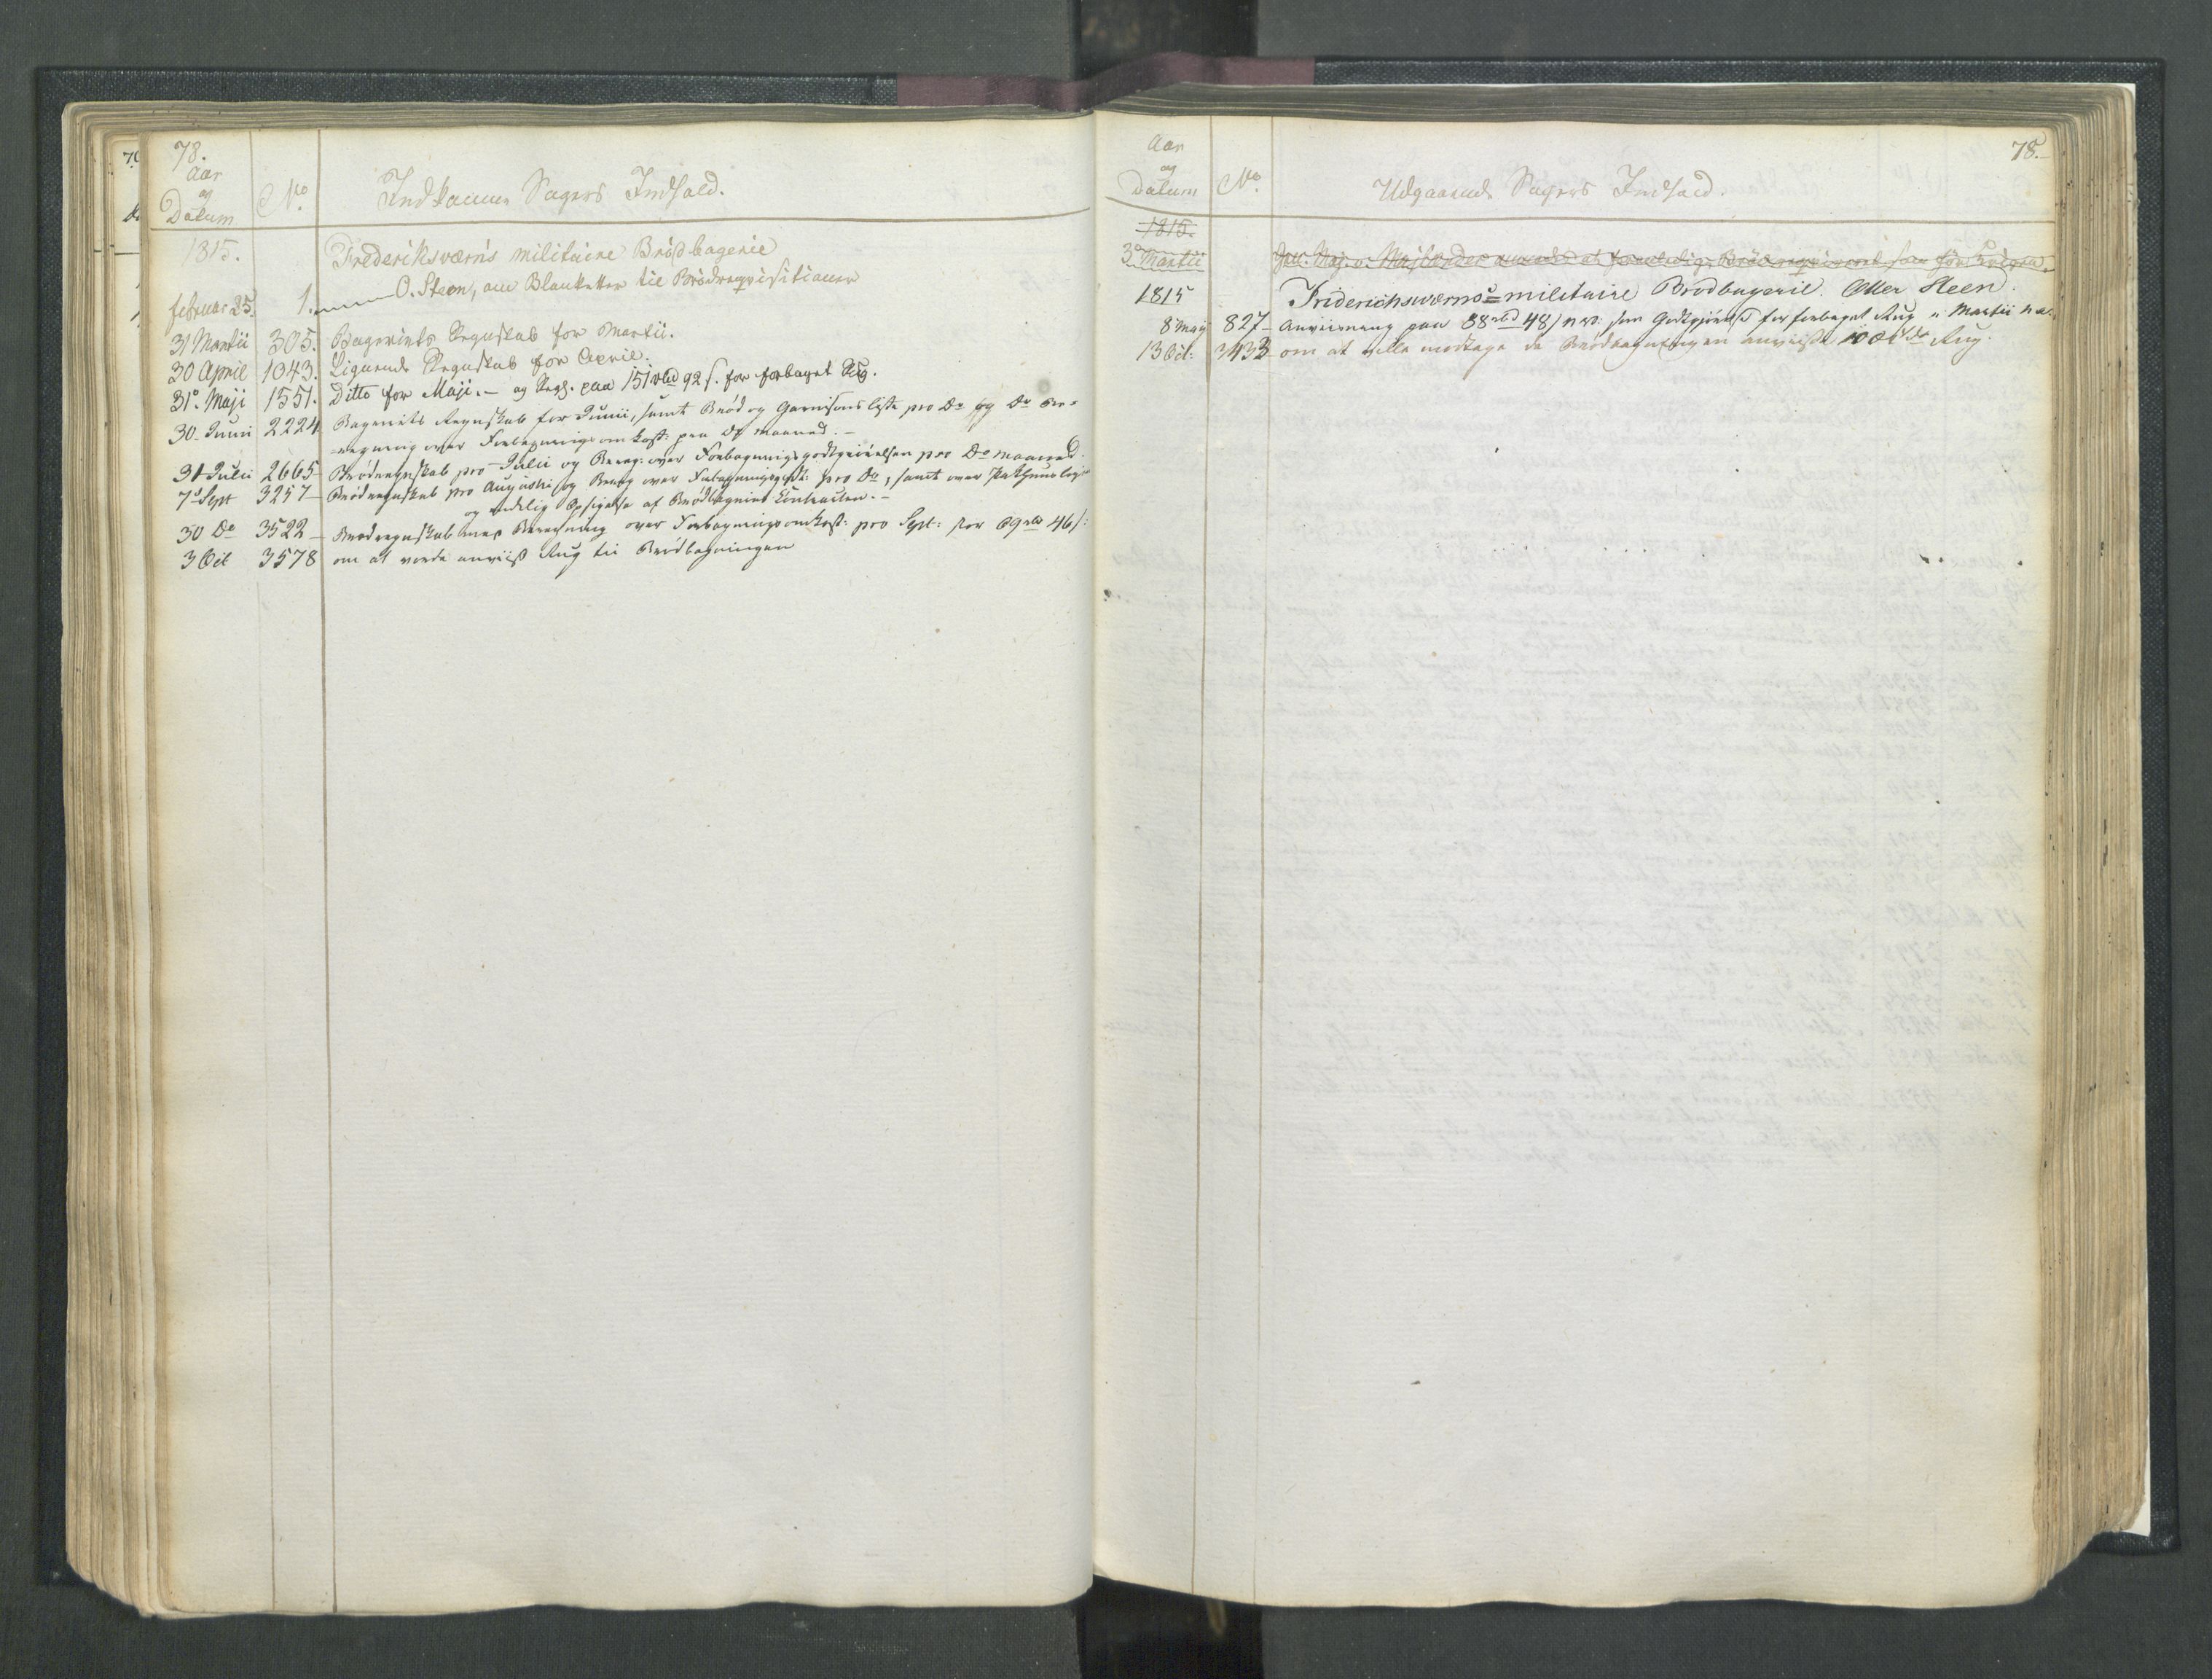 78.
Aar
og
Datum
No.
Indkomne Sagers Indhold.
1815.
Frederiksværns militaire Brödbagerie
Februar 25.
1.
O. Steen, om Blanketter til Brödreqvisitioner
31 Martii 305. Bageriets Regnskab for Martii.
30 April 1043. Ligeende Regnskab for April.
31. Maji 1551. Ditto for Maji. - og Regn. paa 151 rbd 92 s. for forbaget Rug.
30 Junii 2224 Bageriets Regnskab for Junii, samt Bröd og Garnisons liste pro Do og Do Be-
regning over Forbagnings omkost: paa maaned. -
31 Julii 2665 Brödregnskab pro Julii og Bereg: over Forbagningsgodtgiörelsen pro Do maaned.
7 Sept 3257 Brödregnskab pro Augusti og Bereg over pro Do, samt over
og endelig Opsigelse af Brödbagnings Contracten. -
30 Do 3522 Brödregnskab Beregning over Forbagnings omkost: pro Sept: stor 69 rbd 46 s:
3 Oct 3578 om at vorde anviist Rug til Brödbagningen
Aar
og
Datum
No.
Udgaaende Sagers Indhold.
78.
1815.
3 Martii
1815
Friderichsværns militaire Brodbagerie. Oller Steen.
8 May 827 Anviisning paa 88 rbd 48 s som Godtgiörelse for forbaget Rug Martii
13 Oct: 3433 om at ville modtage de Brödbagningen anviiste 100 Rug.